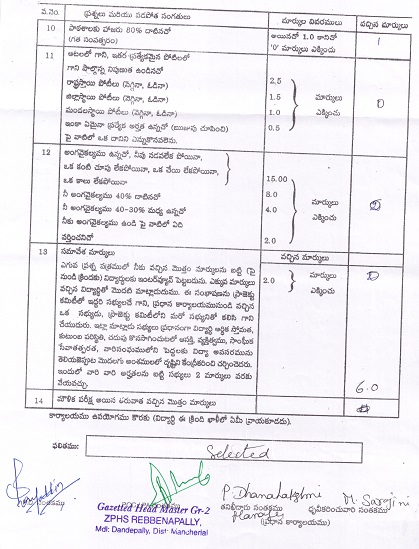 వ.నెం. ప్రశ్నలు మరియు సదుపాత సంగతులు మార్కుల వివరములు వచ్చిన మార్కులు
10 పాఠశాలకు హాజరు 80% దాటినదో అయినచో 1.0 కానిచో 1
(గత సంవత్సరం) '0' మార్కులు ఎక్కించు
11 ఆటలలో గాని, ఇతర ప్రత్యేకమైన పోటీలలో
గాని పాల్గొన్న నిపుణత ఉండినదో
రాష్ట్రస్థాయి పోటీలు (నెగ్గినా, ఓడినా) 2.5
జిల్లాస్థాయి పోటీలు (నెగ్గినా, ఓడినా) 1.5 మార్కులు 0
మండలస్థాయి పోటీలు (నెగ్గినా, ఓడినా) 1.0 ఎక్కించు
ఇంకా ఏమైనా ప్రత్యేక అర్హత ఉన్నచో (ఋజువు చూపించి) 0.5
పై వాటిలో ఒక దానిని ఎన్నుకొనవలెను.
12 అంగవైకల్యము ఉన్నదో, నీవు నడవలేక పోయినా,
ఒక కంటి చూపు లేకపోయినా, ఒక చేయి లేకపోయినా, 15.00
ఒక కాలు లేకపోయినా 8.0 మార్కులు 0
నీ అంగవైకల్యము 40% దాటినదో 4.0 ఎక్కించు
నీ అంగవైకల్యము 40-30% మధ్య ఉన్నదో
నీకు అంగవైకల్యము ఉండి పై వాటిలో ఏది 2.0
వర్తించనిచో
వచ్చిన మార్కులు
13 సమావేశ మార్కులు
ఎగువ ప్రశ్న పత్రములో నీకు వచ్చిన మొత్తం మార్కులను బట్టి (పై
నుండి క్రిందకు) విద్యార్థులకు ఇంటర్వ్యూకి పెట్టబడును. ఎక్కువ మార్కులు 2.0 మార్కులు 0
వచ్చిన విద్యార్థితో మొదట మాట్లాడుదుము. ఈ సంభాషణను ప్రాజెక్టు ఎక్కించు
కమిటీలో ఇద్దరి సభ్యులచే గాని, ప్రధాన కార్యాలయమునుండి వచ్చిన
ఒక సభ్యుడు, ప్రాజెక్టు కమిటీలోని మరో సభ్యునితో కలిసి గాని
చేయుదురు. ఇట్లా మాట్లాడు సభ్యులు ప్రధానంగా విద్యార్థి ఆర్థిక స్తోమత,
కుటుంబ పరిస్థితి, చదువు కొనసాగించుటలో ఆసక్తి, వ్యక్తిత్వము, సాంఘీక
తెలియజెప్పుట మొదలగు అంశములలో దృష్టిని కేంద్రీకరించి చర్చించెదరు.
ఇందులో వారి వారి అర్హతలను బట్టి సభ్యులు 2 మార్కులు వరకు
వేయవచ్చు. 6.0
14 మౌళిక పరీక్ష అయిన తరువాత వచ్చిన మొత్తం మార్కులు
కార్యాలయము ఉపయోగము కొరకు (విద్యార్థి ఈ క్రింది ఖాళీలో ఏమీ వ్రాయకూడదు).
ఫలితము: Selected
P Dhanalakshmi M. Sarojini
Gazetted Head Master Gr-2 తనిఖీదారు సంతకము ధృవీకరించువారి సంతకము
ZPHS REBBENAPALLY, (ప్రధాన కార్యాలయం)
Mdl: Dandepally, Dist: Mancherial